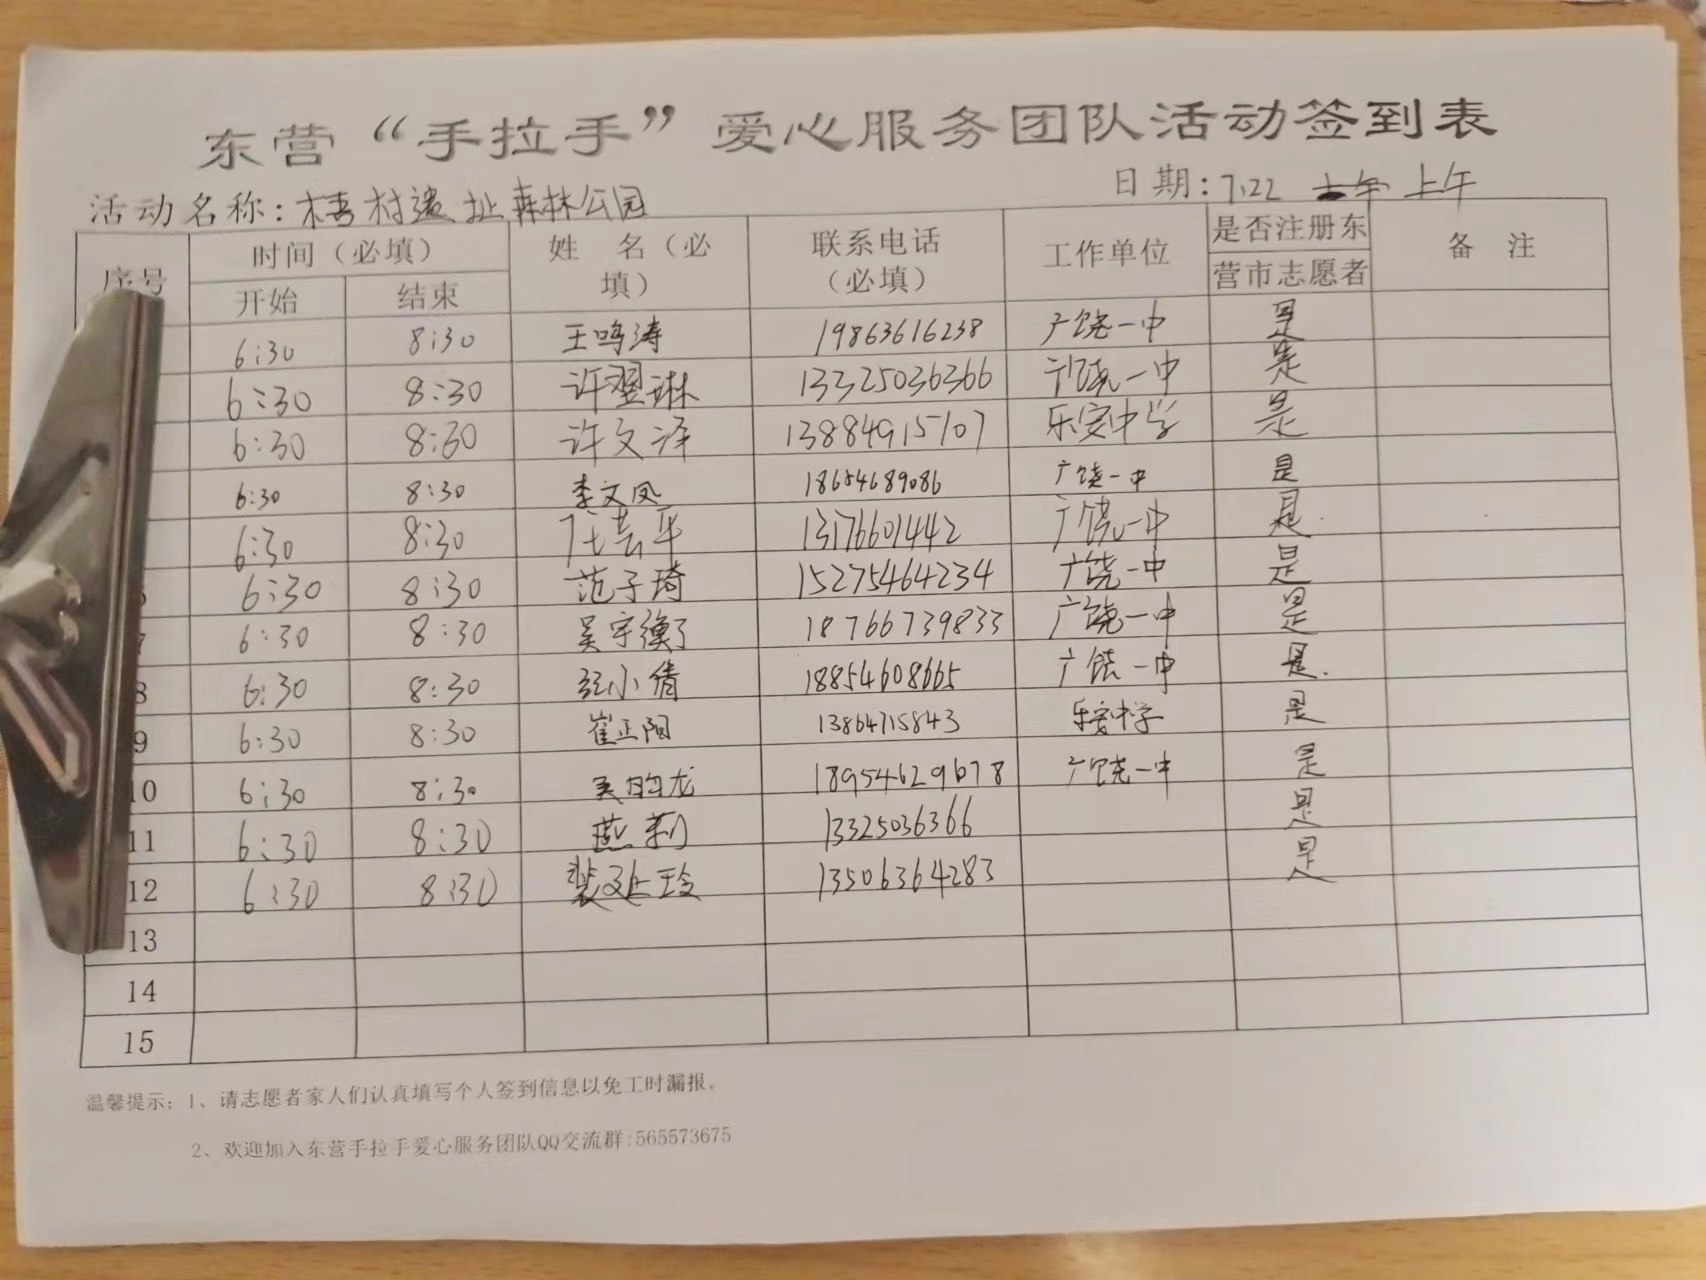 东营“手拉手”爱心服务团队活动签到表
活动名称：桥村遗址森林公园 日期：7.22 上午
序号 时间（必填） 姓 名（必填） 联系电话（必填） 工作单位 是否注册东营市志愿者 备 注
开始 结束
6:30 8:30 王鸣涛 19863616238 广饶一中 是
6:30 8:30 许翌琳 13325036366 广饶一中 是
6:30 8:30 许文泽 13884915107 乐安中学 是
6:30 8:30 李文凤 18654689086 广饶一中 是
6:30 8:30 13176601442 广饶一中 是
6:30 8:30 范子琦 15275464234 广饶一中 是
7 6:30 8:30 吴宇 18766739833 广饶一中 是
8 6:30 8:30 张小倩 18854608665 广饶一中 是
9 6:30 8:30 崔正阳 13864715843 乐安中学 是
10 6:30 8:30 吴昀龙 18954629678 广饶一中 是
11 6:30 8:30 燕莉 13325036366 是
12 6:30 8:30 裴延玲 13506364283 是
13
14
15
温馨提示：1、请志愿者家人们认真填写个人签到信息以免工时漏报。
2、欢迎加入东营手拉手爱心服务团队QQ交流群:565573675